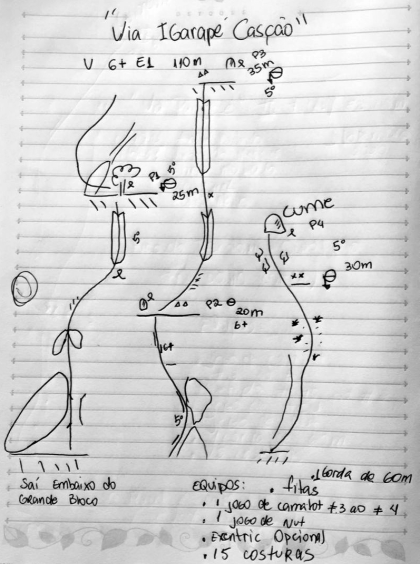 "Via IGarapé Casção"
V 6+ E1 110m
P3
35m
5º
P1
5º
25m
5
cume
P4
5º
30m
P2
20m
6+
5º
Saí Embaixo do
Grande Bloco
EQUIPOS:
. 1 corda de 60m
. fitas
. 1 jogo de camalot #3 ao #4
. 1 jogo de Nut
. Exentric Opcional
. 15 costuras